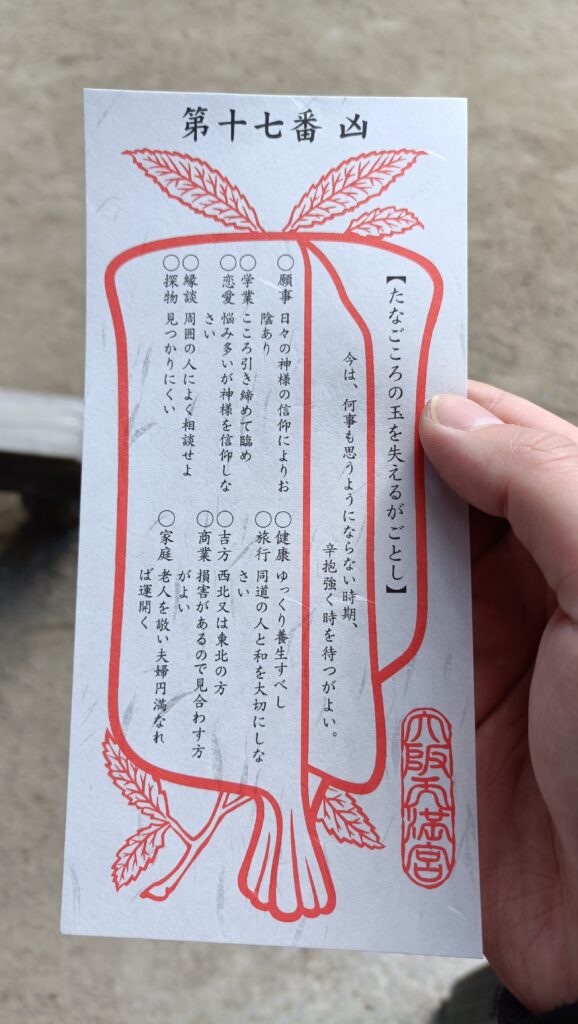 第十七番 凶
【たなごころの玉を失えるがごとし】
今は、何事も思うようにならない時期、
辛抱強く時を待つがよい。
○願事 日々の神様の信仰によりお
陰あり
○学業 こころ引き締めて臨め
○恋愛 悩み多いが神様を信仰しな
さい
○縁談 周囲の人によく相談せよ
○探物 見つかりにくい
○健康 ゆっくり養生すべし
○旅行 同道の人と和を大切にしな
さい
○吉方 西北又は東北の方
○商業 損害があるので見合わす方
がよい
○家庭 老人を敬い夫婦円満なれ
ば運開く
大阪天満宮